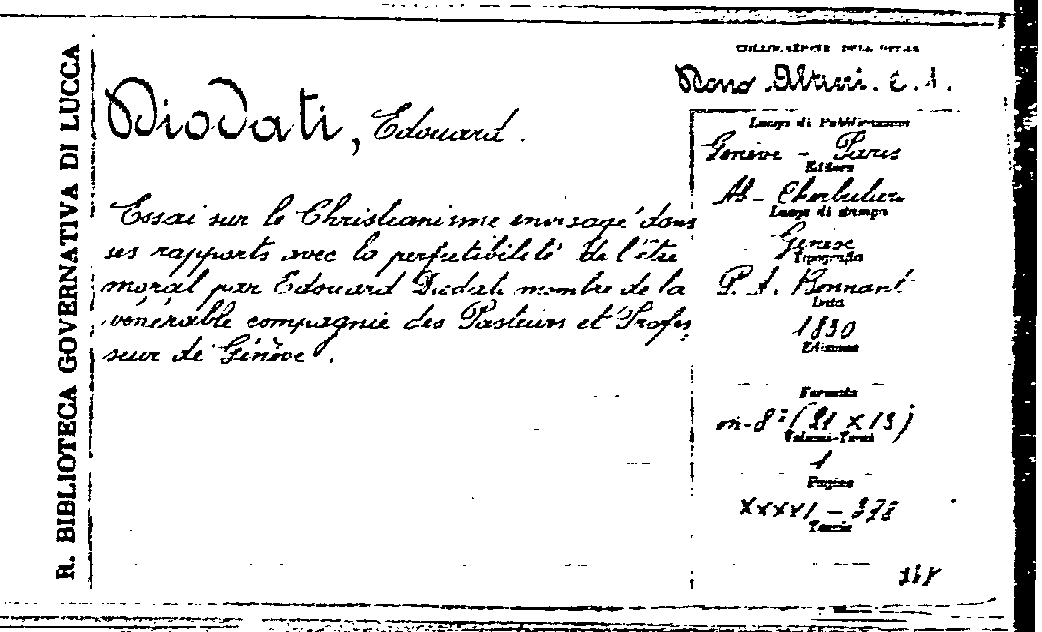 R. BIBLIOTECA GOVERNATIVA DI LUCCA
Diodati, Edouard.
Essai sur le Christianisme envisagé dans
ses rapports avec la perfectibilité de l'être
moral par Edouard Diodati membre de la
vénérable compagnie des Pasteurs et Profes,
seur de Génève.
COLLOCAZIONE DELL'OPERA
Luogo di Pubblicazione
Genève - Paris
Editore
Ab- Cherbuliez
Luogo di stampa
Genève
Tipografia
P. A. Bonnant
Data
1830
Edizione
Formato
in-8° (21 x 13)
Volumi-Tomi
1
Pagine
XXXVI - 378
Tavole